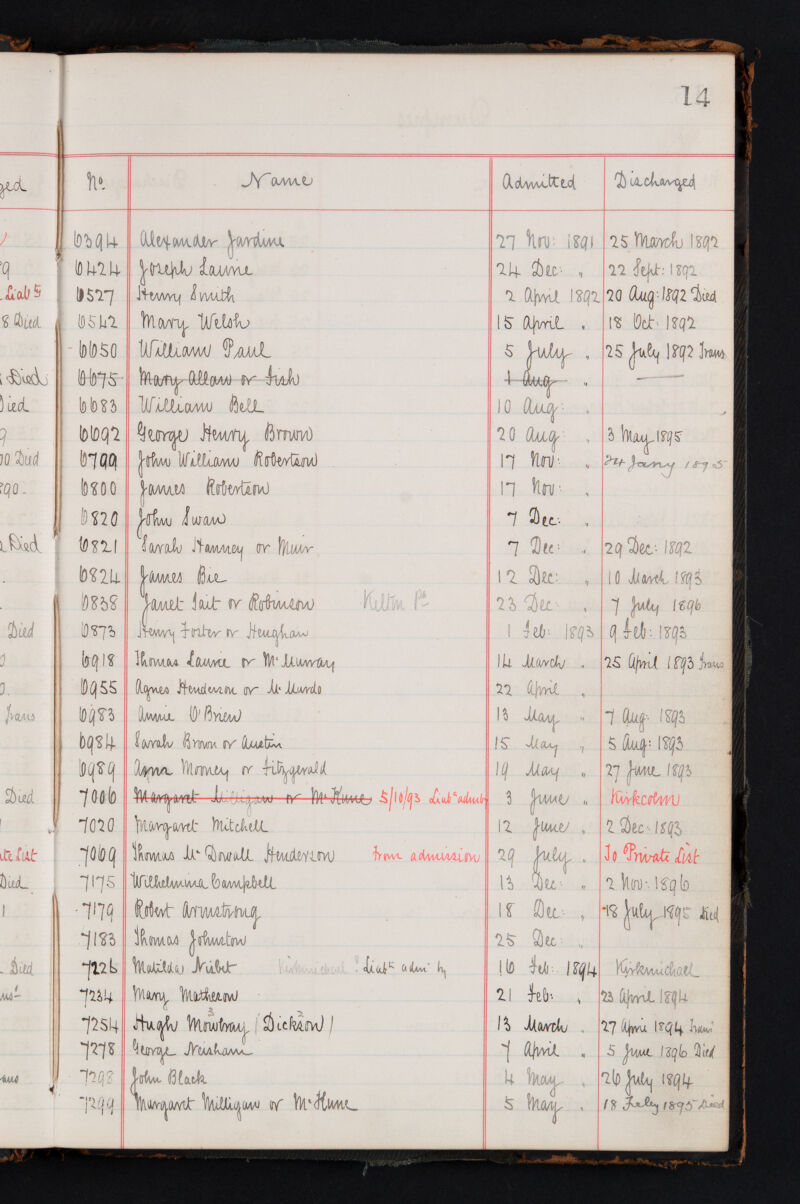 14
No. Name Admitted Discharged
6394 Alexander Jardine 27 Nov: 1891 25 March 1892
6424 Joseph Laurie 24 Dec: " 22 Sept: 1892
Liab 6527 Henry Smith 2 April 1892 20 Aug: 1892 Died
8 Died 6542 Mary Welsh 15 April " 18 Oct: 1892
6650 William Paul 5 July " 25 July 1892 Trans
Died 6675 Mary Allan or Fish 1 Aug "
Died 6683 William Bell 10 Aug: "
6692 George Henry Brown 20 Aug: " 3 May 1895
Died 6799 John William Robertson 17 Nov: " 24 Jany 1895
6800 James Robertson 17 Nov: "
6820 John Swan 7 Dec: "
Died 6821 Sarah Hanney or Muir 7 Dec: " 29 Dec: 1892
6824 James Bie 12 Dec: " 10 March 1893
6838 Janet Tait or Robinson Kelton Ph 23 Dec: " 7 July 1896
Died 6873 Henry Foster or Heughan 1 Feb: 1893 9 Feb: 1893
6918 Thomas Laurie or McMurray 14 March " 25 April 1893 Trans
6955 Agnes Henderson or McMurdo 22 April "
Trans 6983 Annie O'Brien 13 May " 7 Aug: 1893
6984 Sarah Brown or Austin 15 May " 5 Aug: 1893
6989 Agnes Mooney or Fitzgerald 19 May " 27 June 1893
Died 7006 Margaret Milligan or McKune 5/10/93 Liaby admitd 3 June " Kirkcolm
7020 Margaret Mitchell 12 June " 2 Dec: 1893
List 7069 Thomas McDowall Henderson From admission 29 July " To Private List
Died 7175 Wilhelmina Campbell 13 Dec: " 2 Nov: 1896
7179 Robert Armstrong 18 Dec: " 18 July 1895 Died
7183 Thomas Johnston 25 Dec: "
Died 7226 Matilda Nisbet Kirkmichael ? Liaby adm by 16 Feb: 1894 Kirkmichael
7234 Mary Matheson 21 Feb: " 23 April 1894
7254 Hugh Mowbray (Dickson) 13 March " 27 April 1894 Trans
7278 George Neisham 7 April " 5 June 1896 Died
7298 John Black 4 May " 26 July 1894
7299 Margaret Milligan or McKune 5 May " 18 July 1895 Died